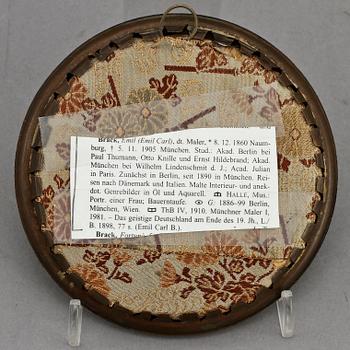 Brack, Emil (Emil Carl), dt. Maler, * 8. 12. 1860 Naum-
burg, † 5. 11. 1905 München. Stud.: Akad. Berlin bei
Paul Thumann, Otto Knille und Ernst Hildebrand; Akad.
München bei Wilhelm Lindenschmit d. J.; Acad. Julian
in Paris. Zunächst in Berlin, seit 1890 in München. Rei-
sen nach Dänemark und Italien. Malte Interieur- und anek-
dot. Genrebilder in Öl und Aquarell. HALLE, Mus.:
Portr. einer Frau; Bauernstaufe. G: 1886–99 Berlin,
München, Wien. ThB IV, 1910. Münchner Maler I,
1981. – Das geistige Deutschland am Ende des 19. Jh., L./
B. 1898, 77 s. (Emil Carl B.).
Brack,